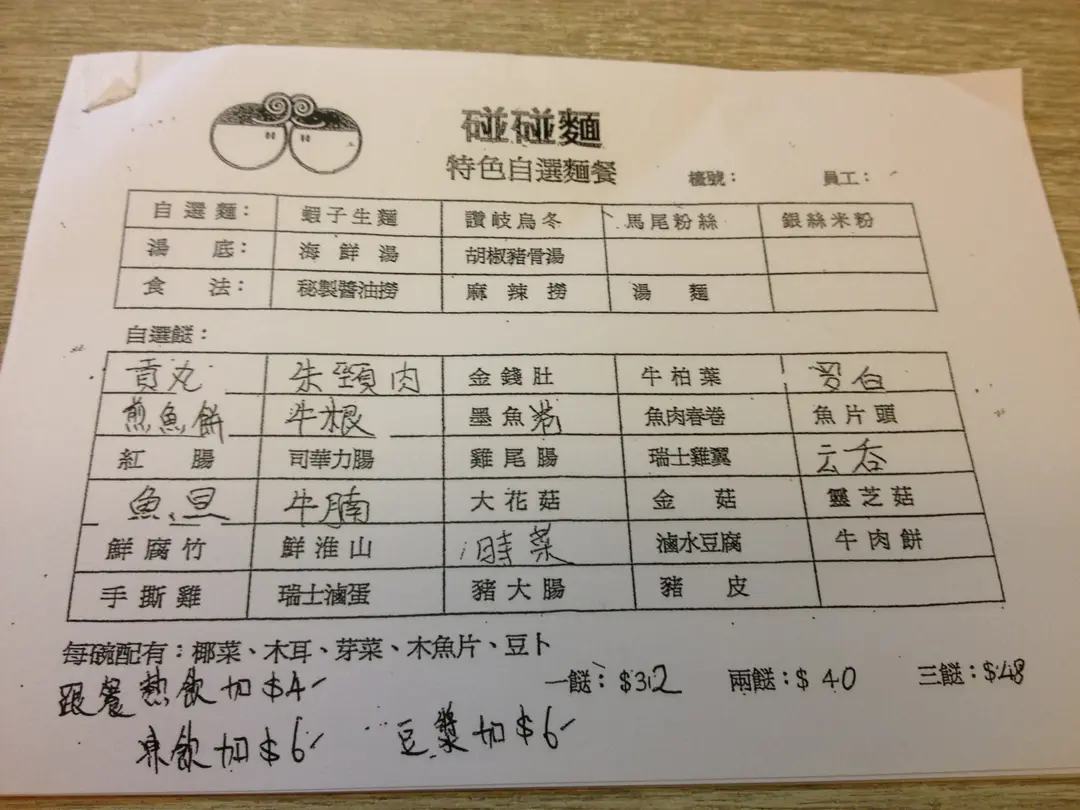 碰碰麵
特色自選麵餐
檯號： 員工：
自選麵： 蝦子生麵 讚岐烏冬 馬尾粉絲 銀絲米粉
湯 底： 海鮮湯 胡椒豬骨湯
食 法： 秘製醬油撈 麻辣撈 湯麵
自選餸：
貢丸 朱頸肉 金錢肚 牛柏葉 罗白
煎魚餅 牛根 墨魚卷 魚肉春卷 魚片頭
紅腸 司華力腸 雞尾腸 瑞士雞翼 云吞
魚旦 牛腩 大花菇 金菇 靈芝菇
鮮腐竹 鮮淮山 時菜 滷水豆腐 牛肉餅
手撕雞 瑞士滷蛋 豬大腸 豬皮
每碗配有：椰菜、木耳、芽菜、木魚片、豆卜
一餸：$32 兩餸：$40 三餸：$48
跟餐熱飲加$4
凍飲加$6 豆漿加$6